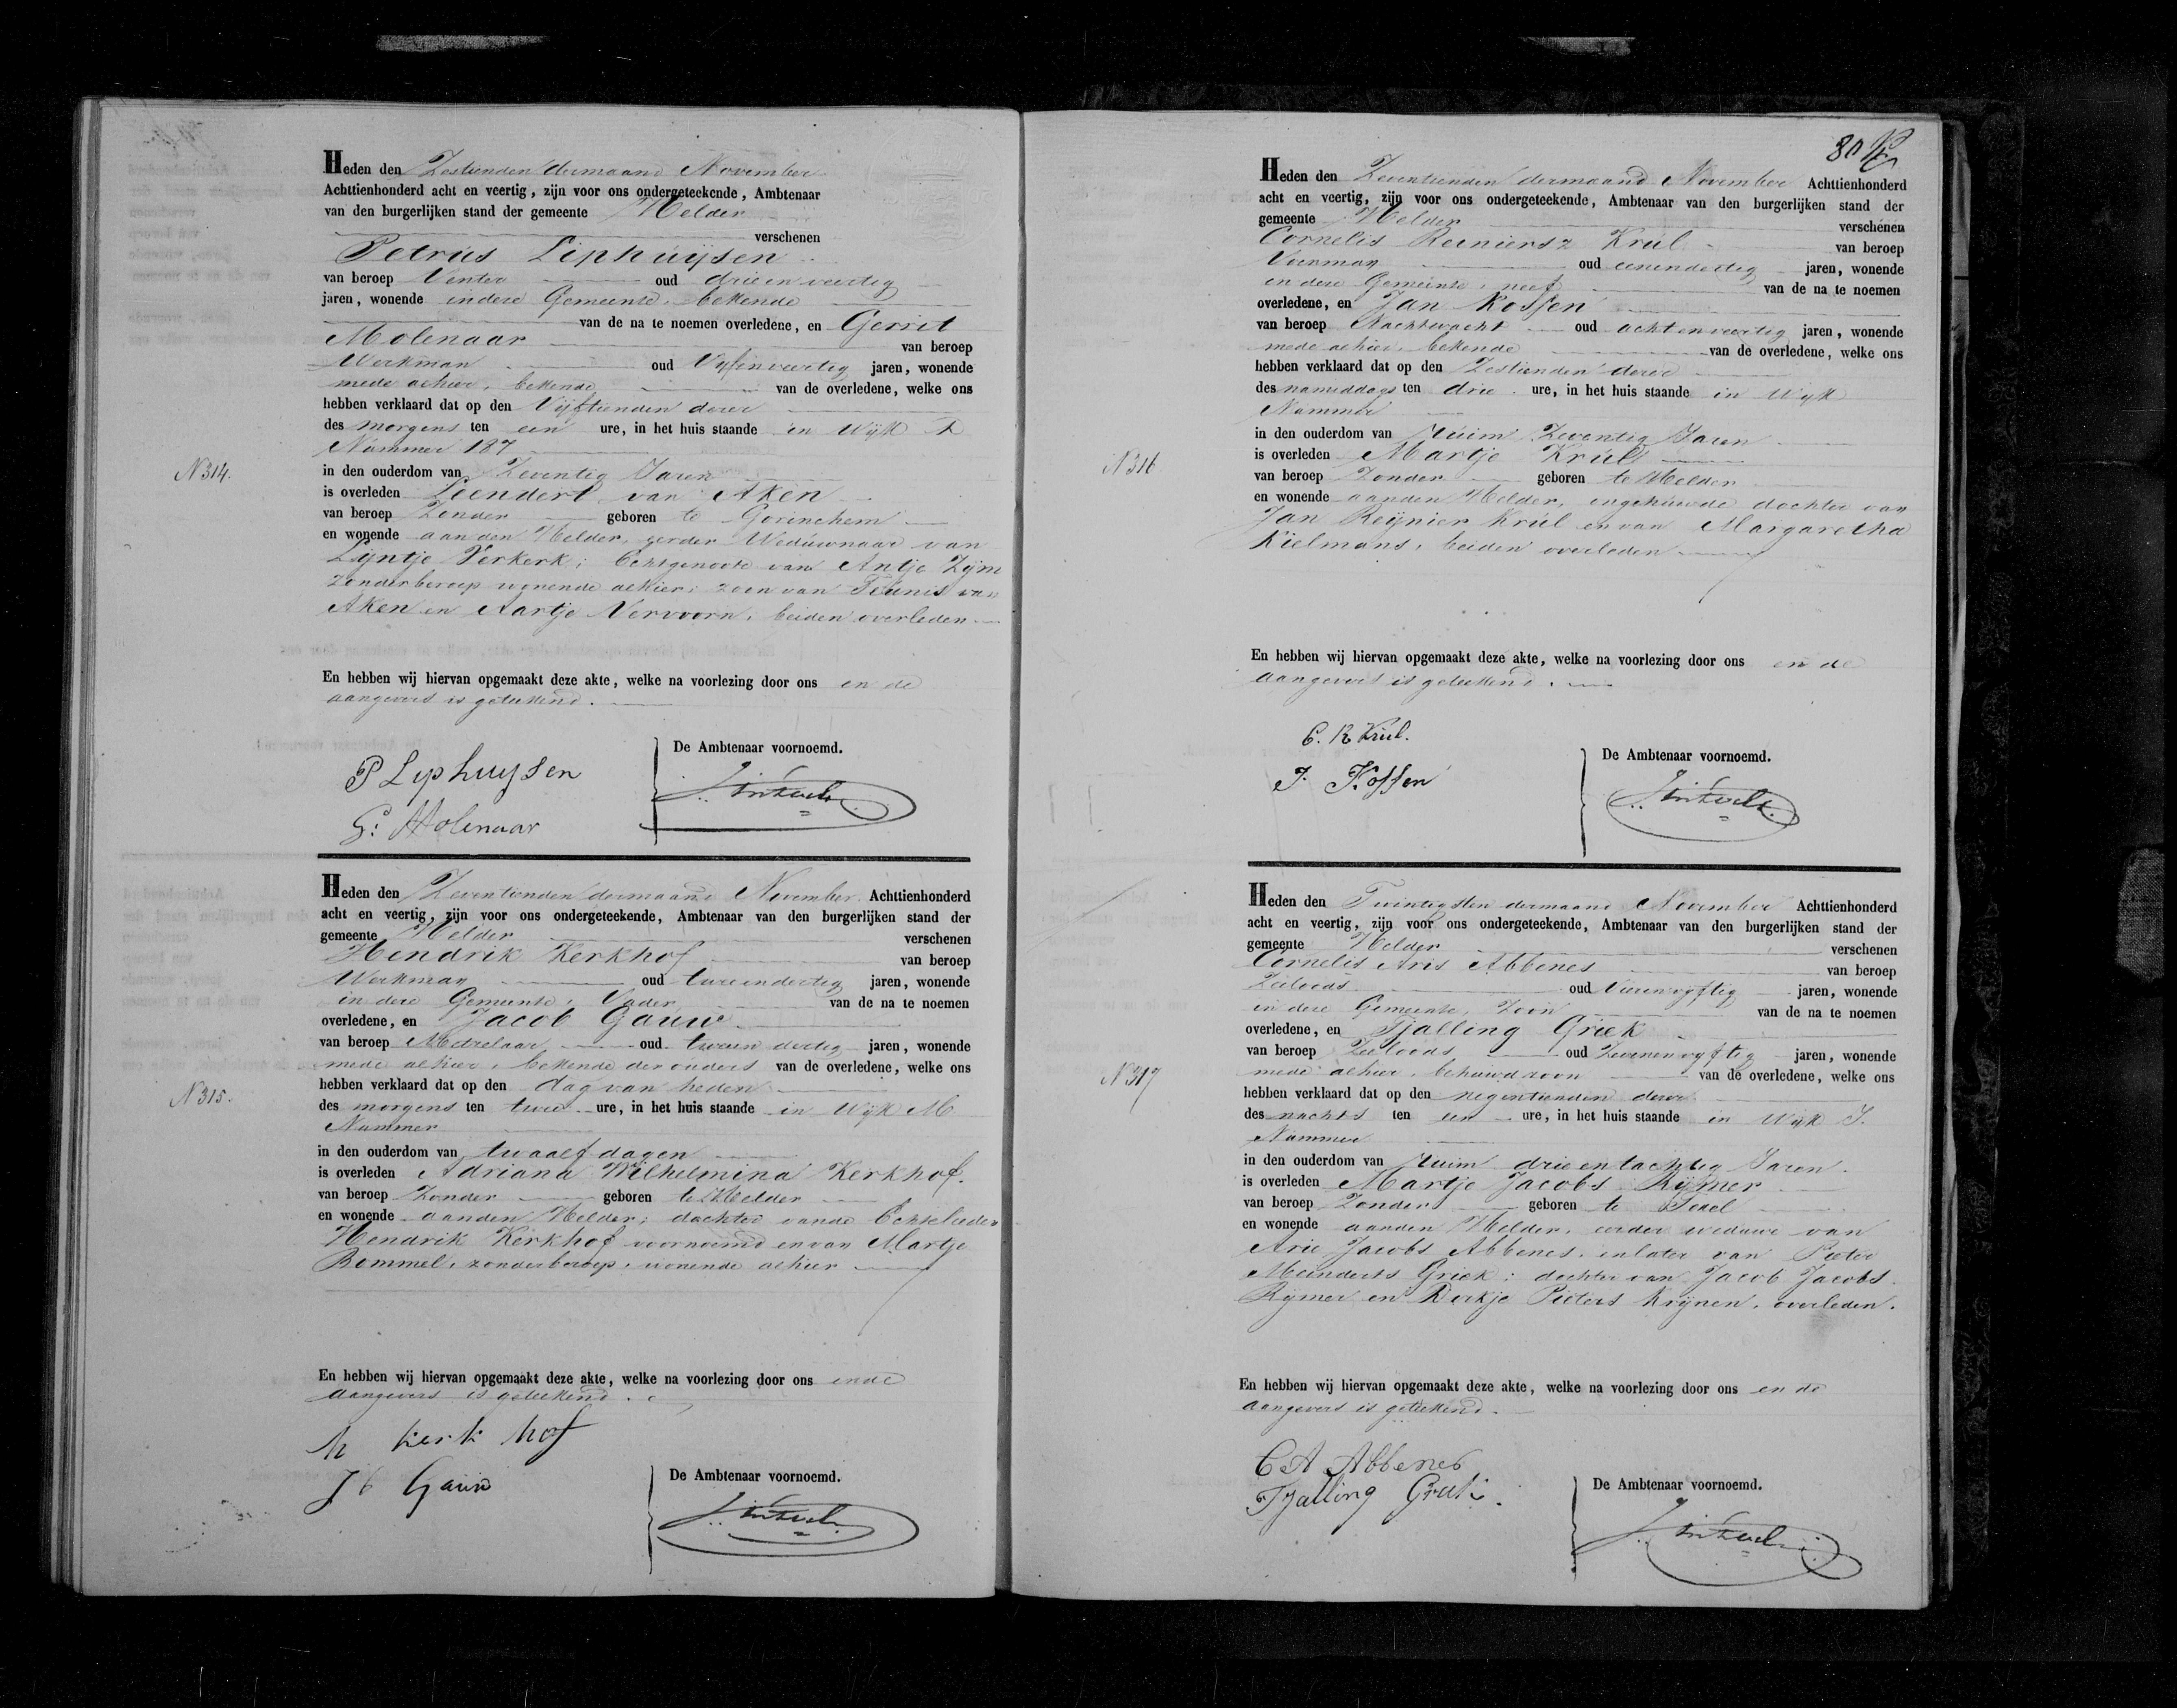 Heden den Zestienden dermaand November
Achttienhonderd acht en veertig, zijn voor ons ondergeteekende, Ambtenaar
van den burgerlijken stand der gemeente Helder
verschenen
Petrus Liphuijsen
van beroep Venter oud drieenveertig
jaren, wonende in deze Gemeente, bekende
van de na te noemen overledene, en Gerrit
Molenaar van beroep
Werkman oud Vijfenveertig jaren, wonende
mede alhier, bekende van de overledene, welke ons
hebben verklaard dat op den Vijftienden dezer
des morgens ten een ure, in het huis staande in Wijk
Nummer 187
N 314.
in den ouderdom van Zeventig Jaren
is overleden Leendert van Aken
van beroep Zonder geboren te Gorinchem
en wonende aan den Helder, eerder Weduwnaar van
Lijntje Verkerk; Echtgenoote van Antje Zijm
zonder beroep wonende alhier; zoon van Teunis van
Aken en Aartje Vervoorn, beiden overleden.
En hebben wij hiervan opgemaakt deze akte, welke na voorlezing door ons en de
aangevers is geteekend.
P Liphuijsen
G: Molenaar
De Ambtenaar voornoemd.
Heden den Zeventienden dermaand November Achttienhonderd
acht en veertig, zijn voor ons ondergeteekende, Ambtenaar van den burgerlijken stand der
gemeente Helder verschenen
Hendrik Kerkhof van beroep
Werkman oud twee en dertig jaren, wonende
in deze Gemeente, Vader van de na te noemen
overledene, en Jacob Gauw
van beroep Metzelaar oud tweeen dertig jaren, wonende
mede alhier, bekende der ouders van de overledene, welke ons
hebben verklaard dat op den dag van heden
des morgens ten twee ure, in het huis staande in Wijk M
Nummer
N 315.
in den ouderdom van twaalf dagen
is overleden Adriana Wilhelmina Kerkhof.
van beroep Zonder geboren te Helder
en wonende aan den Helder; dochter van de Echtelieden
Hendrik Kerkhof voornoemd en van Martje
Bommel, zonder beroep, wonende alhier
En hebben wij hiervan opgemaakt deze akte, welke na voorlezing door ons en de
aangevers is geteekend.
H Kerkhof
Jb Gauw
De Ambtenaar voornoemd.
80
Heden den Zeventienden dermaand November Achttienhonderd
acht en veertig, zijn voor ons ondergeteekende, Ambtenaar van den burgerlijken stand der
gemeente Helder verschenen
Cornelis Reiniersz Krul van beroep
Voerman oud eenendertig jaren, wonende
in deze Gemeente, neef van de na te noemen
overledene, en Jan Kossen
van beroep Nachtwacht oud achtenveertig jaren, wonende
mede alhier, bekende van de overledene, welke ons
hebben verklaard dat op den Zestienden dezer
des namiddags ten drie ure, in het huis staande in Wijk
Nummer
N 316
in den ouderdom van Ruim Zeventig Jaren
is overleden Martje Krul
van beroep Zonder geboren te Helder
en wonende aan den Helder, ongehuwde dochter van
Jan Reijnier Krul en van Margaretha
Kielmans, beiden overleden
En hebben wij hiervan opgemaakt deze akte, welke na voorlezing door ons en de
aangevers is geteekend.
C. R Krul.
J. Kossen
De Ambtenaar voornoemd.
Heden den Twintigsten dermaand November Achttienhonderd
acht en veertig, zijn voor ons ondergeteekende, Ambtenaar van den burgerlijken stand der
gemeente Helder verschenen
Cornelis Aris Abbenes van beroep
Zeeloods oud Vierenvyftig jaren, wonende
in deze Gemeente, Zoon van de na te noemen
overledene, en Tjalling Griek
van beroep Zeeloods oud Zevenenvyftig jaren, wonende
mede alhier, behuwdzoon van de overledene, welke ons
hebben verklaard dat op den negentienden dezer
des nachts ten een ure, in het huis staande in Wijk J.
Nummer
N 317
in den ouderdom van Ruim drieentachtig Jaren.
is overleden Martje Jacobs Rijmer
van beroep Zonder geboren te Texel
en wonende aan den Helder, eerder weduwe van
Arie Jacobs Abbenes, en later van Pieter
Meinderts Griek; dochter van Jacob Jacobs
Rijmer en Dirkje Pieters Krijnen, overleden.
En hebben wij hiervan opgemaakt deze akte, welke na voorlezing door ons en de
aangevers is geteekend.
C A Abbenes
Tjalling Griek.
De Ambtenaar voornoemd.